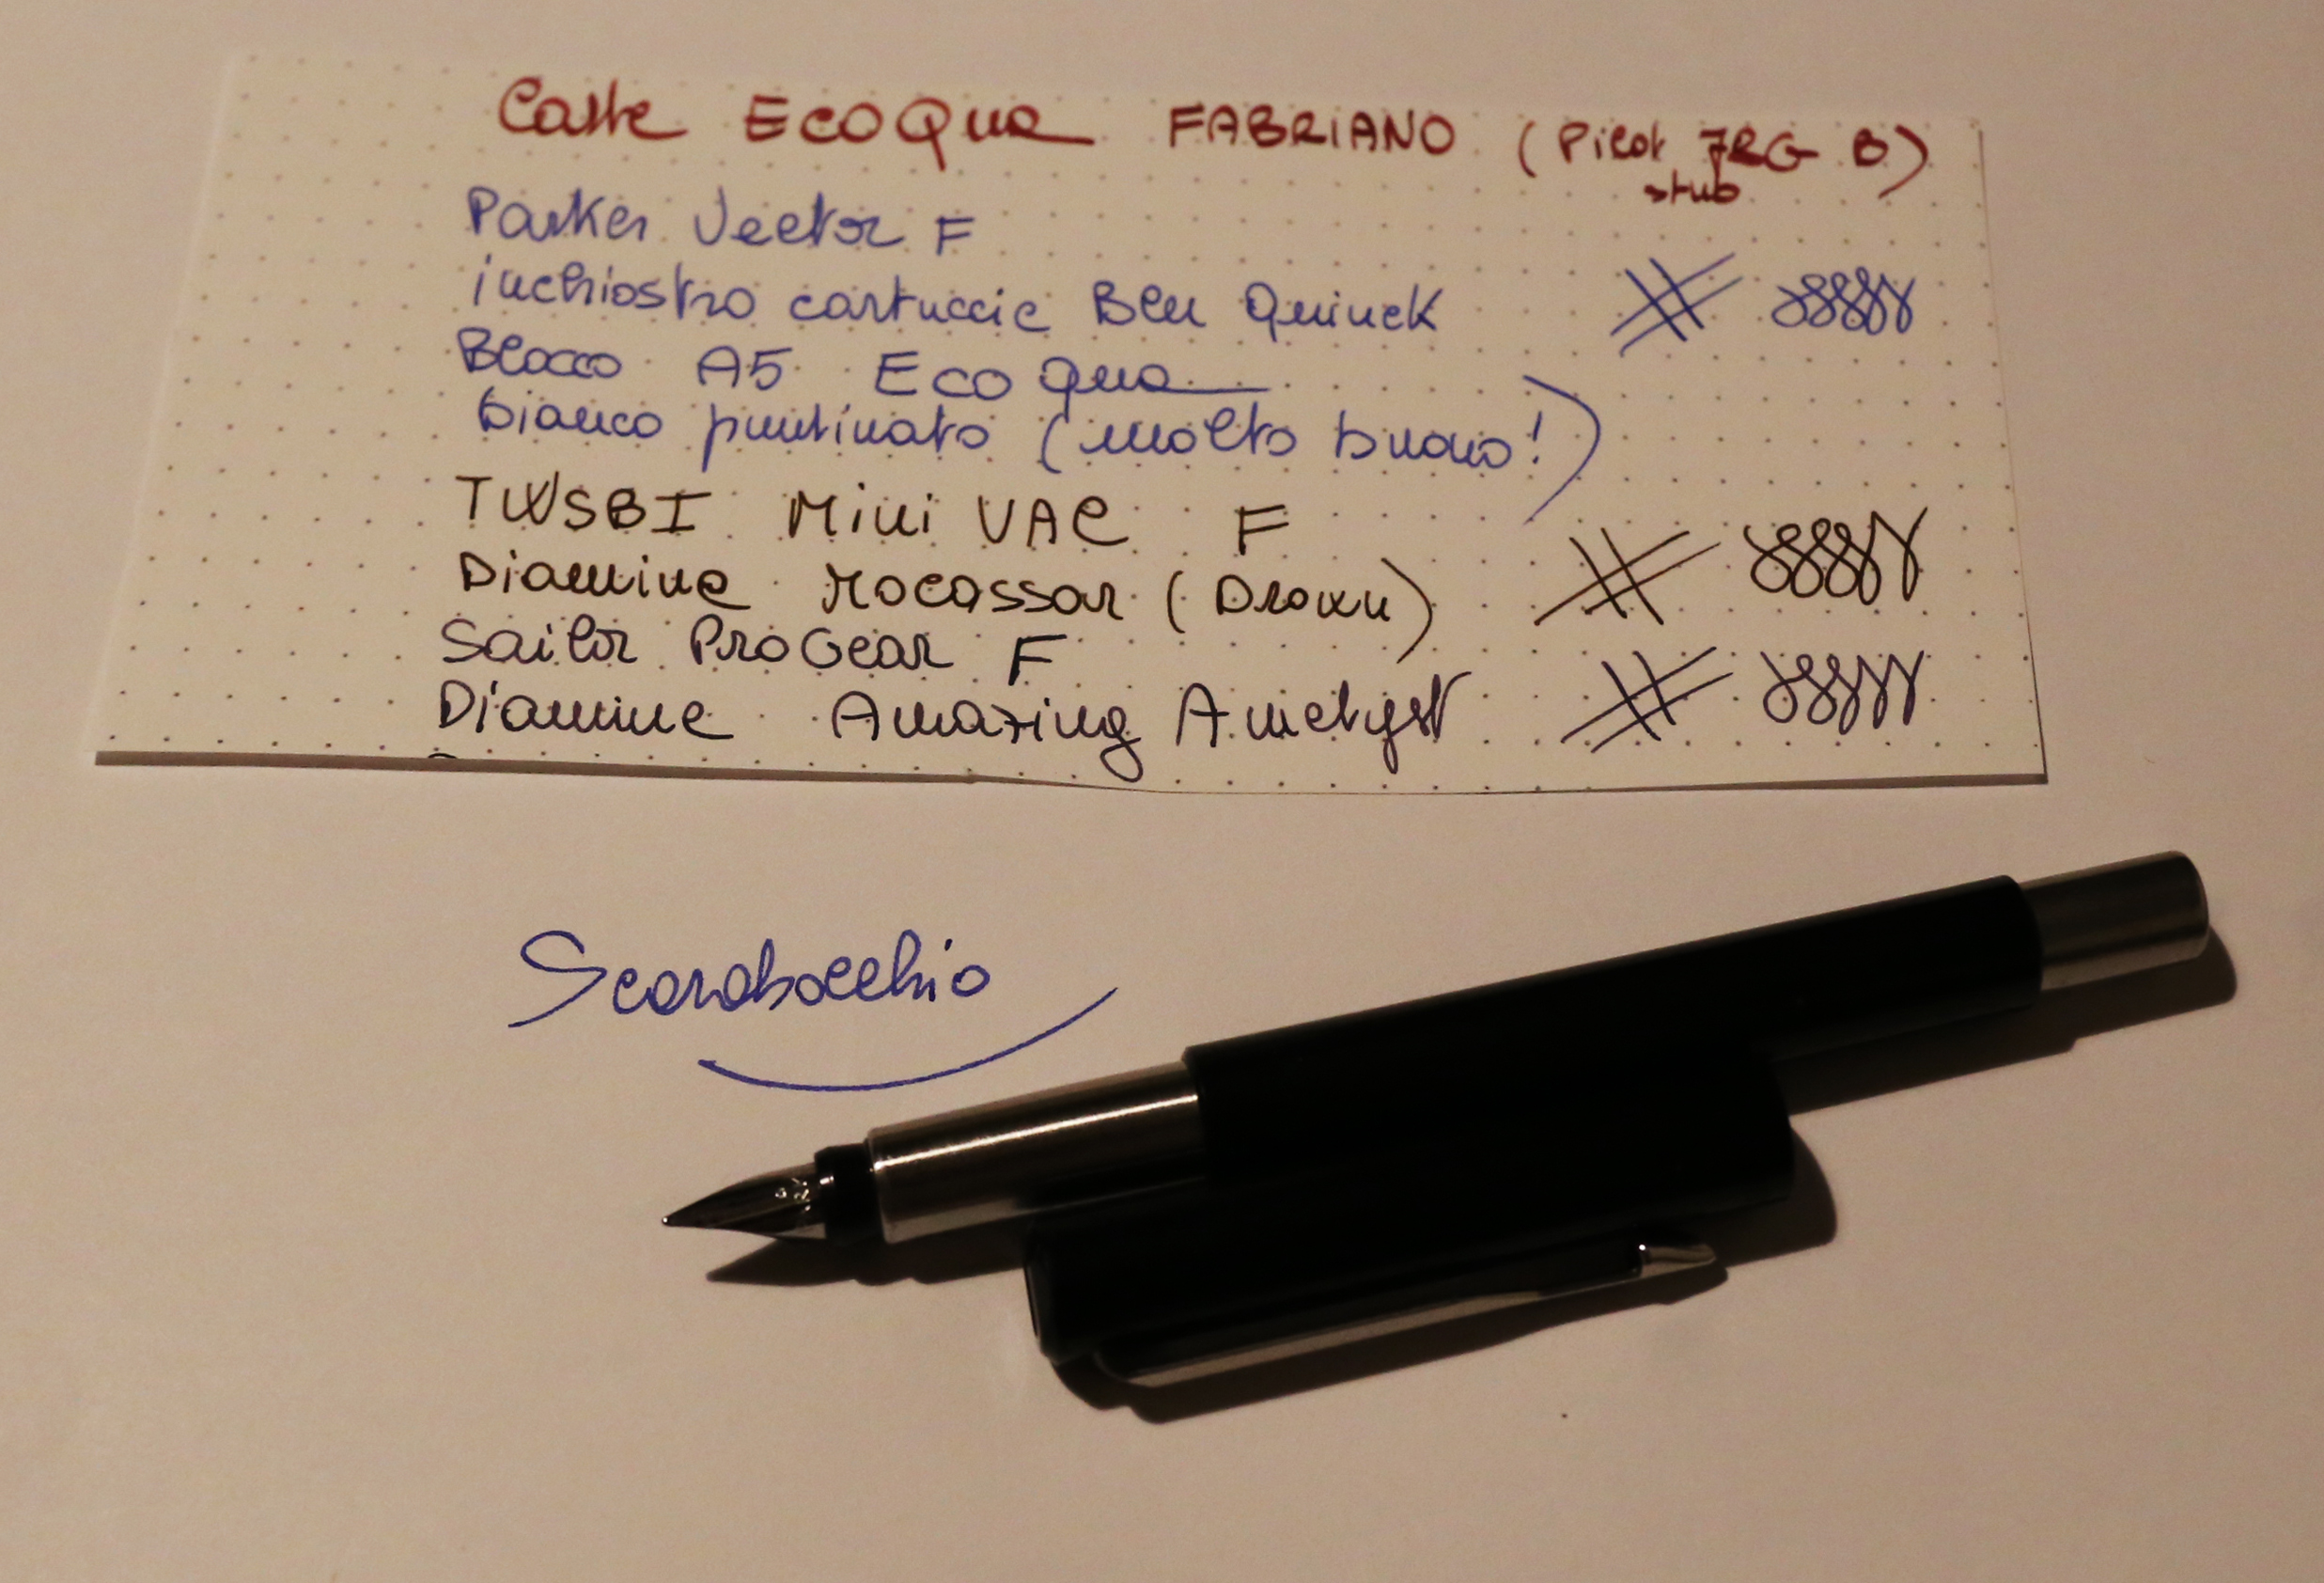 Carte ECOQua FABRIANO (Pilot 78G B)
stub
Parker Vector F
inchiostro cartuccie Blu Quinck
Blocco A5 EcoQua
bianco puntinato (molto buono!)
TWSBI Mini VAC F
Diamine Mocassar (Brown)
Sailor ProGear F
Diamine Amazing Ametyst
Scarabocchio